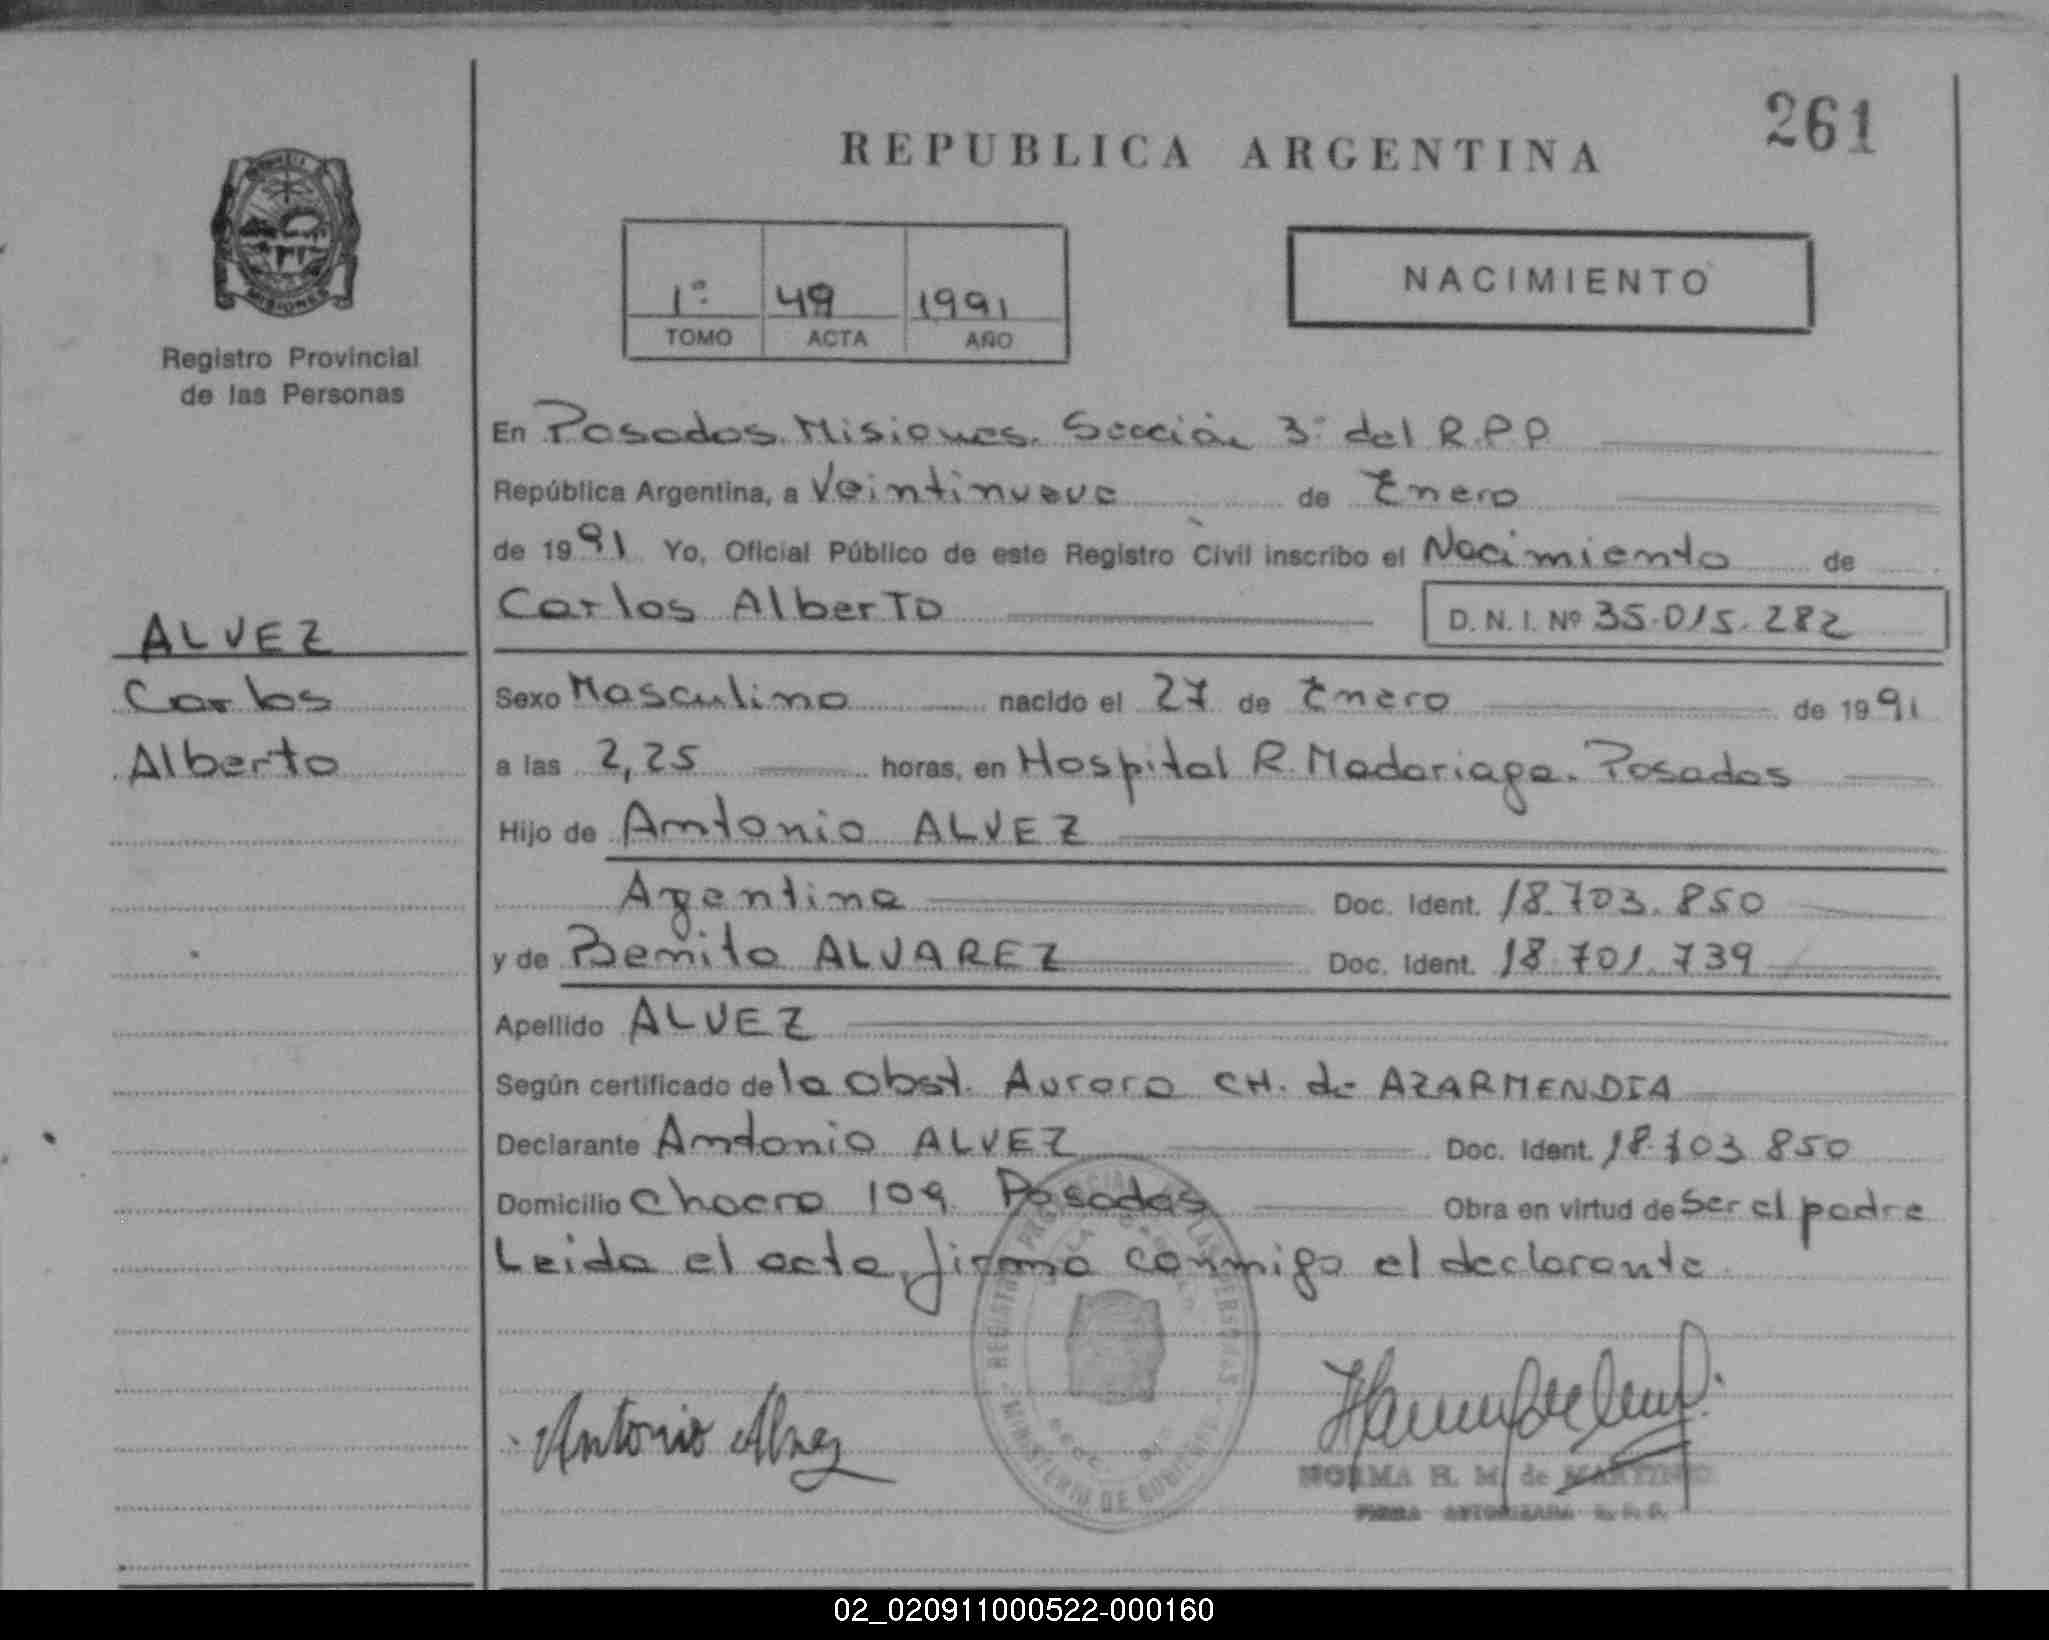 261
REPUBLICA ARGENTINA
MISIONES
Registro Provincial
de las Personas
1º 49 1991
TOMO ACTA AÑO
NACIMIENTO
En Posadas Misiones. Sección 3º del R.P.P
República Argentina, a Veintinueve de Enero
de 1991 Yo, Oficial Público de este Registro Civil inscribo el Nacimiento de
Carlos Alberto D. N. I. Nº 35.015.282
ALVEZ
Carlos
Alberto
Sexo Masculino nacido el 27 de Enero de 1991
a las 2,25 horas, en Hospital R. Madariaga. Posadas
Hijo de Antonio ALVEZ
Argentina Doc. Ident. 18.703.850
y de Benita ALVAREZ Doc. Ident. 18.701.739
Apellido ALVEZ
Según certificado de la Obst. Aurora CH. de AZARMENDIA
Declarante Antonio ALVEZ Doc. Ident. 18.703 850
Domicilio Chacra 109. Posadas Obra en virtud de ser el padre
Leida el acta, firma conmigo el declarante
REGISTRO PROVINCIAL DE LAS PERSONAS
MINISTERIO DE GOBIERNO
Antonio Alvez
NORMA H. M. de MARTINEZ
FIRMA AUTORIZADA R. P. P.
02_020911000522-000160